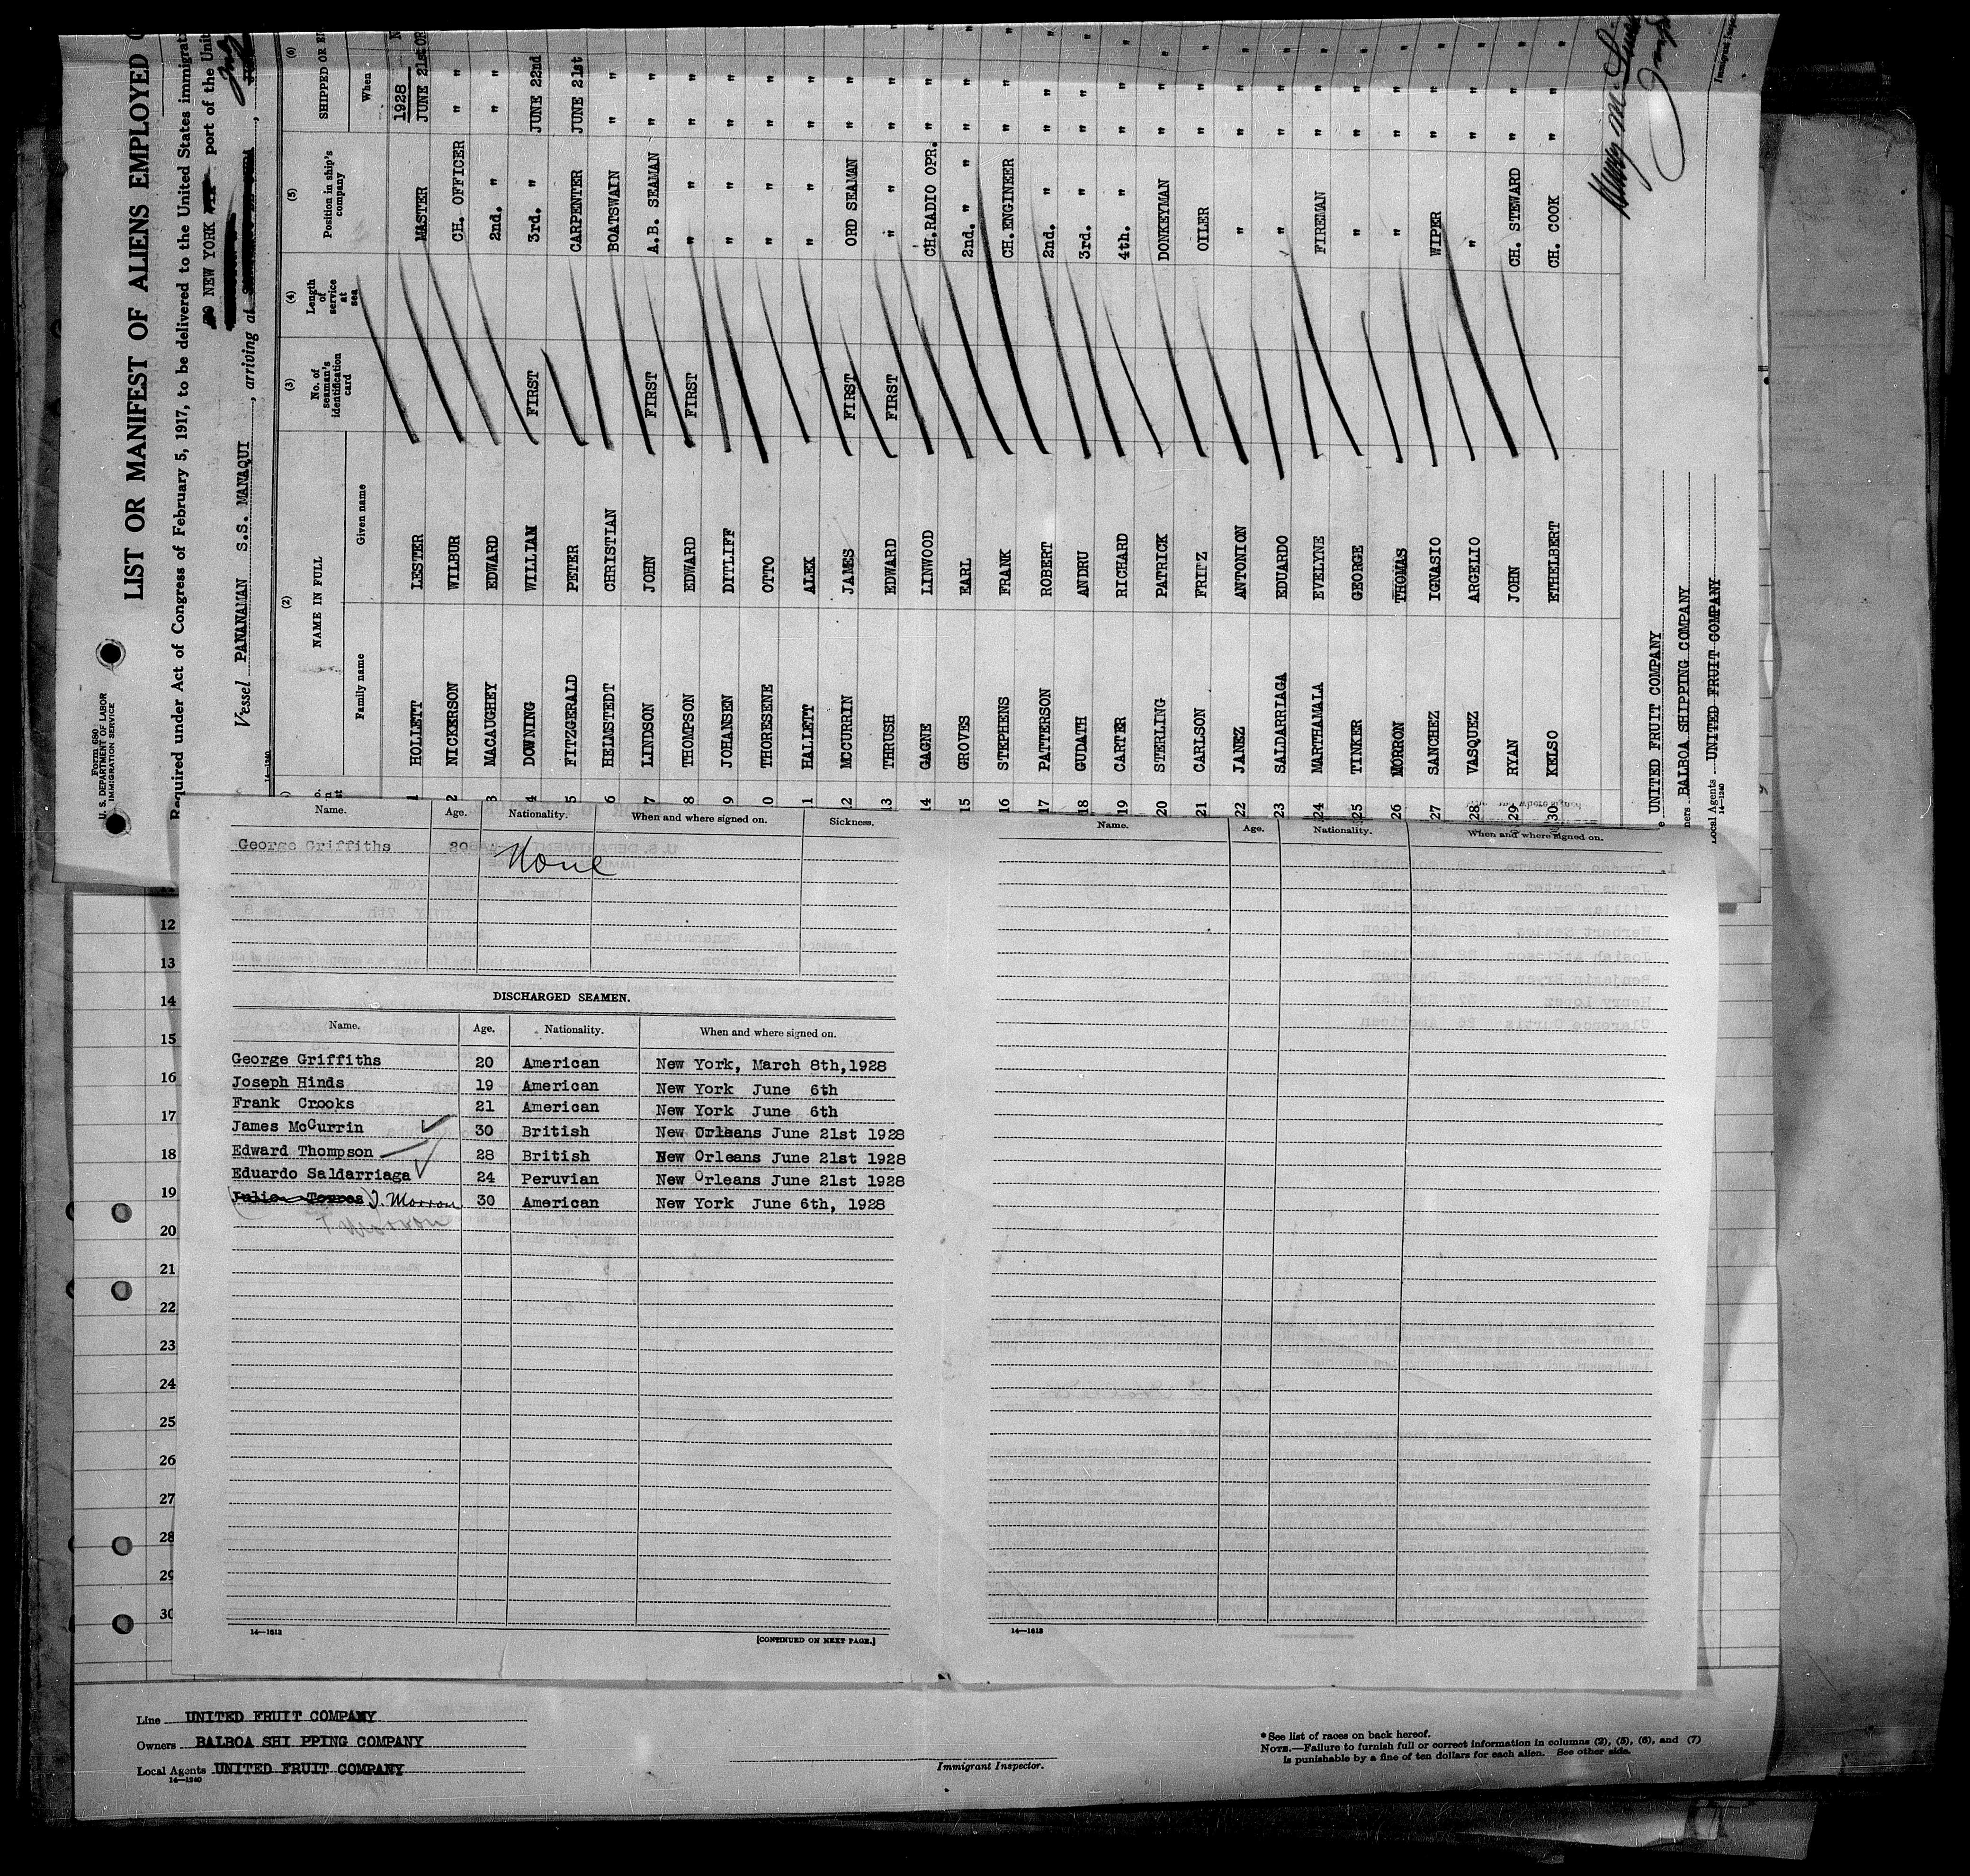 Form 680
U. S. DEPARTMENT OF LABOR
IMMIGRATION SERVICE
LIST OR MANIFEST OF ALIENS EMPLOYED
Required under Act of Congress of February 5, 1917, to be delivered to the United States immigrati
NEW YORK port of the Unit
Vessel PANANAMAN S.S. MANAQUI, arriving at
14-1240
(2) (3) (4) (5) (6)
NAME IN FULL No. of seaman's identification card Length of service at sea Position in ship's company SHIPPED OR EN
Family name Given name When
1928
1 HOLLETT LESTER MASTER JUNE 21st
2 NICKERSON WILBUR CH. OFFICER " "
3 MACAUGHEY EDWARD 2nd. " " "
4 DOWNING WILLIAM FIRST 3rd. " JUNE 22nd
5 FITZGERALD PETER CARPENTER JUNE 21st
6 HELMSTEDT CHRISTIAN BOATSWAIN " "
7 LINDSON JOHN FIRST A.B. SEAMAN " "
8 THOMPSON EDWARD FIRST " " "
9 JOHANSEN DITLIFF " " "
0 THORESENE OTTO " " "
1 HALLETT ALEX " " "
12 MCCURRIN JAMES FIRST ORD SEAMAN " "
13 THRUSH EDWARD FIRST " " "
14 GAGNE LINWOOD CH.RADIO OPR. " "
15 GROVES EARL 2nd. " " " "
16 STEPHENS FRANK CH.ENGINEER " "
17 PATTERSON ROBERT 2nd. " " "
18 GUDATH ANDRU 3rd. " " "
19 CARTER RICHARD 4th. " " "
20 STERLING PATRICK DONKEYMAN " "
21 CARLSON FRITZ OILER " "
22 JANEZ ANTONION " " "
23 SALDARRIAGA EDUARDO " " "
24 MARTHAMALA EVELYNE FIREMAN " "
25 TINKER GEORGE " " "
26 MORRON THOMAS " " "
27 SANCHEZ IGNASIO WIPER " "
28 VASQUEZ ARGELIO " " "
29 RYAN JOHN CH. STEWARD " "
30 KELSO ETHELBERT CH. COOK " "
UNITED FRUIT COMPANY
BALBOA SHIPPING COMPANY
Local Agents UNITED FRUIT COMPANY
14-1240
Immigrant Inspec
Name. Age. Nationality. When and where signed on. Sickness.
George Griffiths 20 None
DISCHARGED SEAMEN.
Name. Age. Nationality. When and where signed on.
George Griffiths 20 American New York, March 8th,1928
Joseph Hinds 19 American New York June 6th
Frank Crooks 21 American New York June 6th
James McCurrin 30 British New Orleans June 21st 1928
Edward Thompson 28 British New Orleans June 21st 1928
Eduardo Saldarriaga 24 Peruvian New Orleans June 21st 1928
Julio Torres T. Morron 30 American New York June 6th, 1928
T Morron
14—1613
[CONTINUED ON NEXT PAGE.]
Name. Age. Nationality. When and where signed on.
14—1613
12
13
14
15
16
17
18
19
20
21
22
23
24
25
26
27
28
29
30
Line UNITED FRUIT COMPANY
Owners BALBOA SHI PPING COMPANY
Local Agents UNITED FRUIT COMPANY
14—1240
Immigrant Inspector.
*See list of races on back hereof.
NOTE.—Failure to furnish full or correct information in columns (2), (5), (6), and (7)
is punishable by a fine of ten dollars for each alien. See other side.